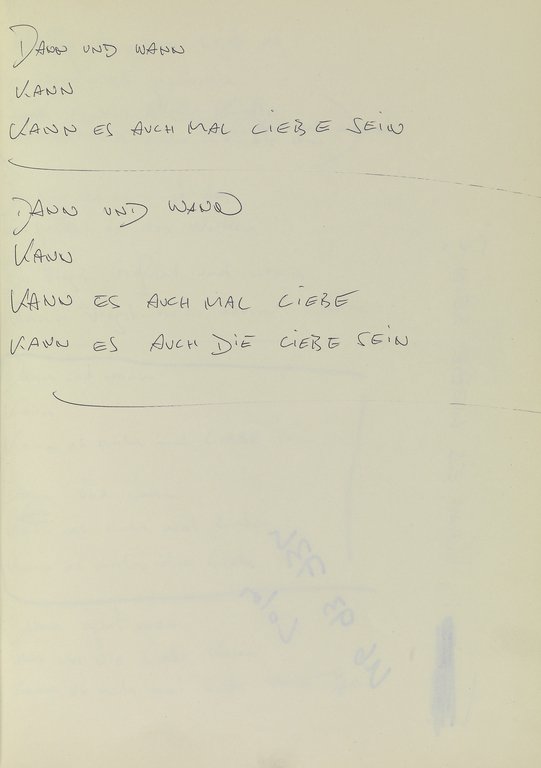 DANN UND WANN
KANN
KANN ES AUCH MAL LIEBE SEIN
DANN UND WANN
KANN
KANN ES AUCH MAL LIEBE
KANN ES AUCH DIE LIEBE SEIN